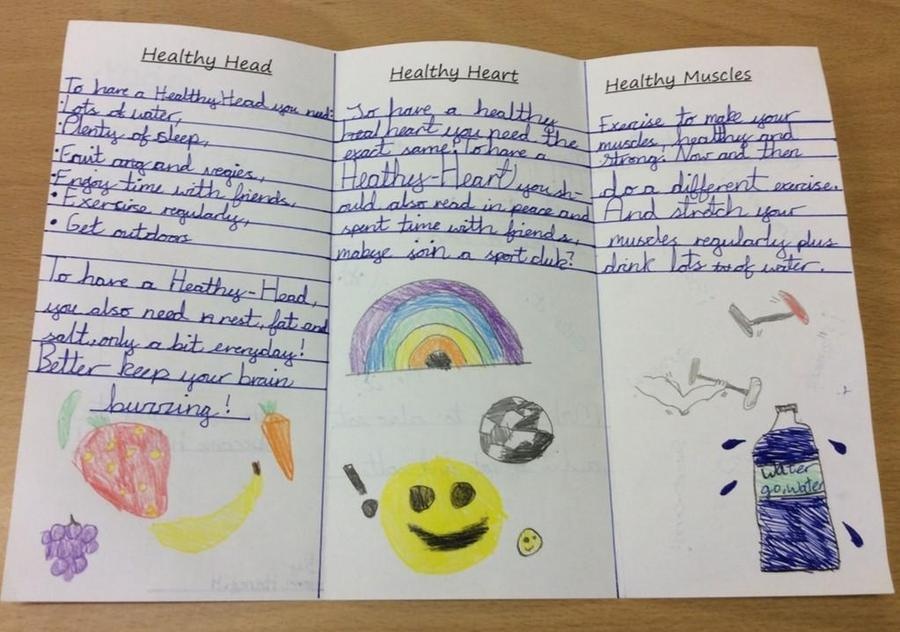 Healthy Head
To have a Healthy Head you need:
• Lots of water,
• Plenty of sleep,
• Fruit ang and vegies,
• Enjoy time with friends,
• Exersise regularly,
• Get outdoors
To have a Heathy-Head,
you also need n rest, fat and
salt, only a bit everyday!
Better keep your brain
buzzing!
Healthy Heart
To have a healthy
heart you need the
exact same. To have a
Heathy-Heart) you sh-
ould also read in peace and
spent time with friends,
mabye join a sport club?
Healthy Muscles
Exercise to make your
muscles, healthy and
strong. Now and then
do a different exercise.
And stretch your
muscles regularly plus
drink lots of water.
water
go, water